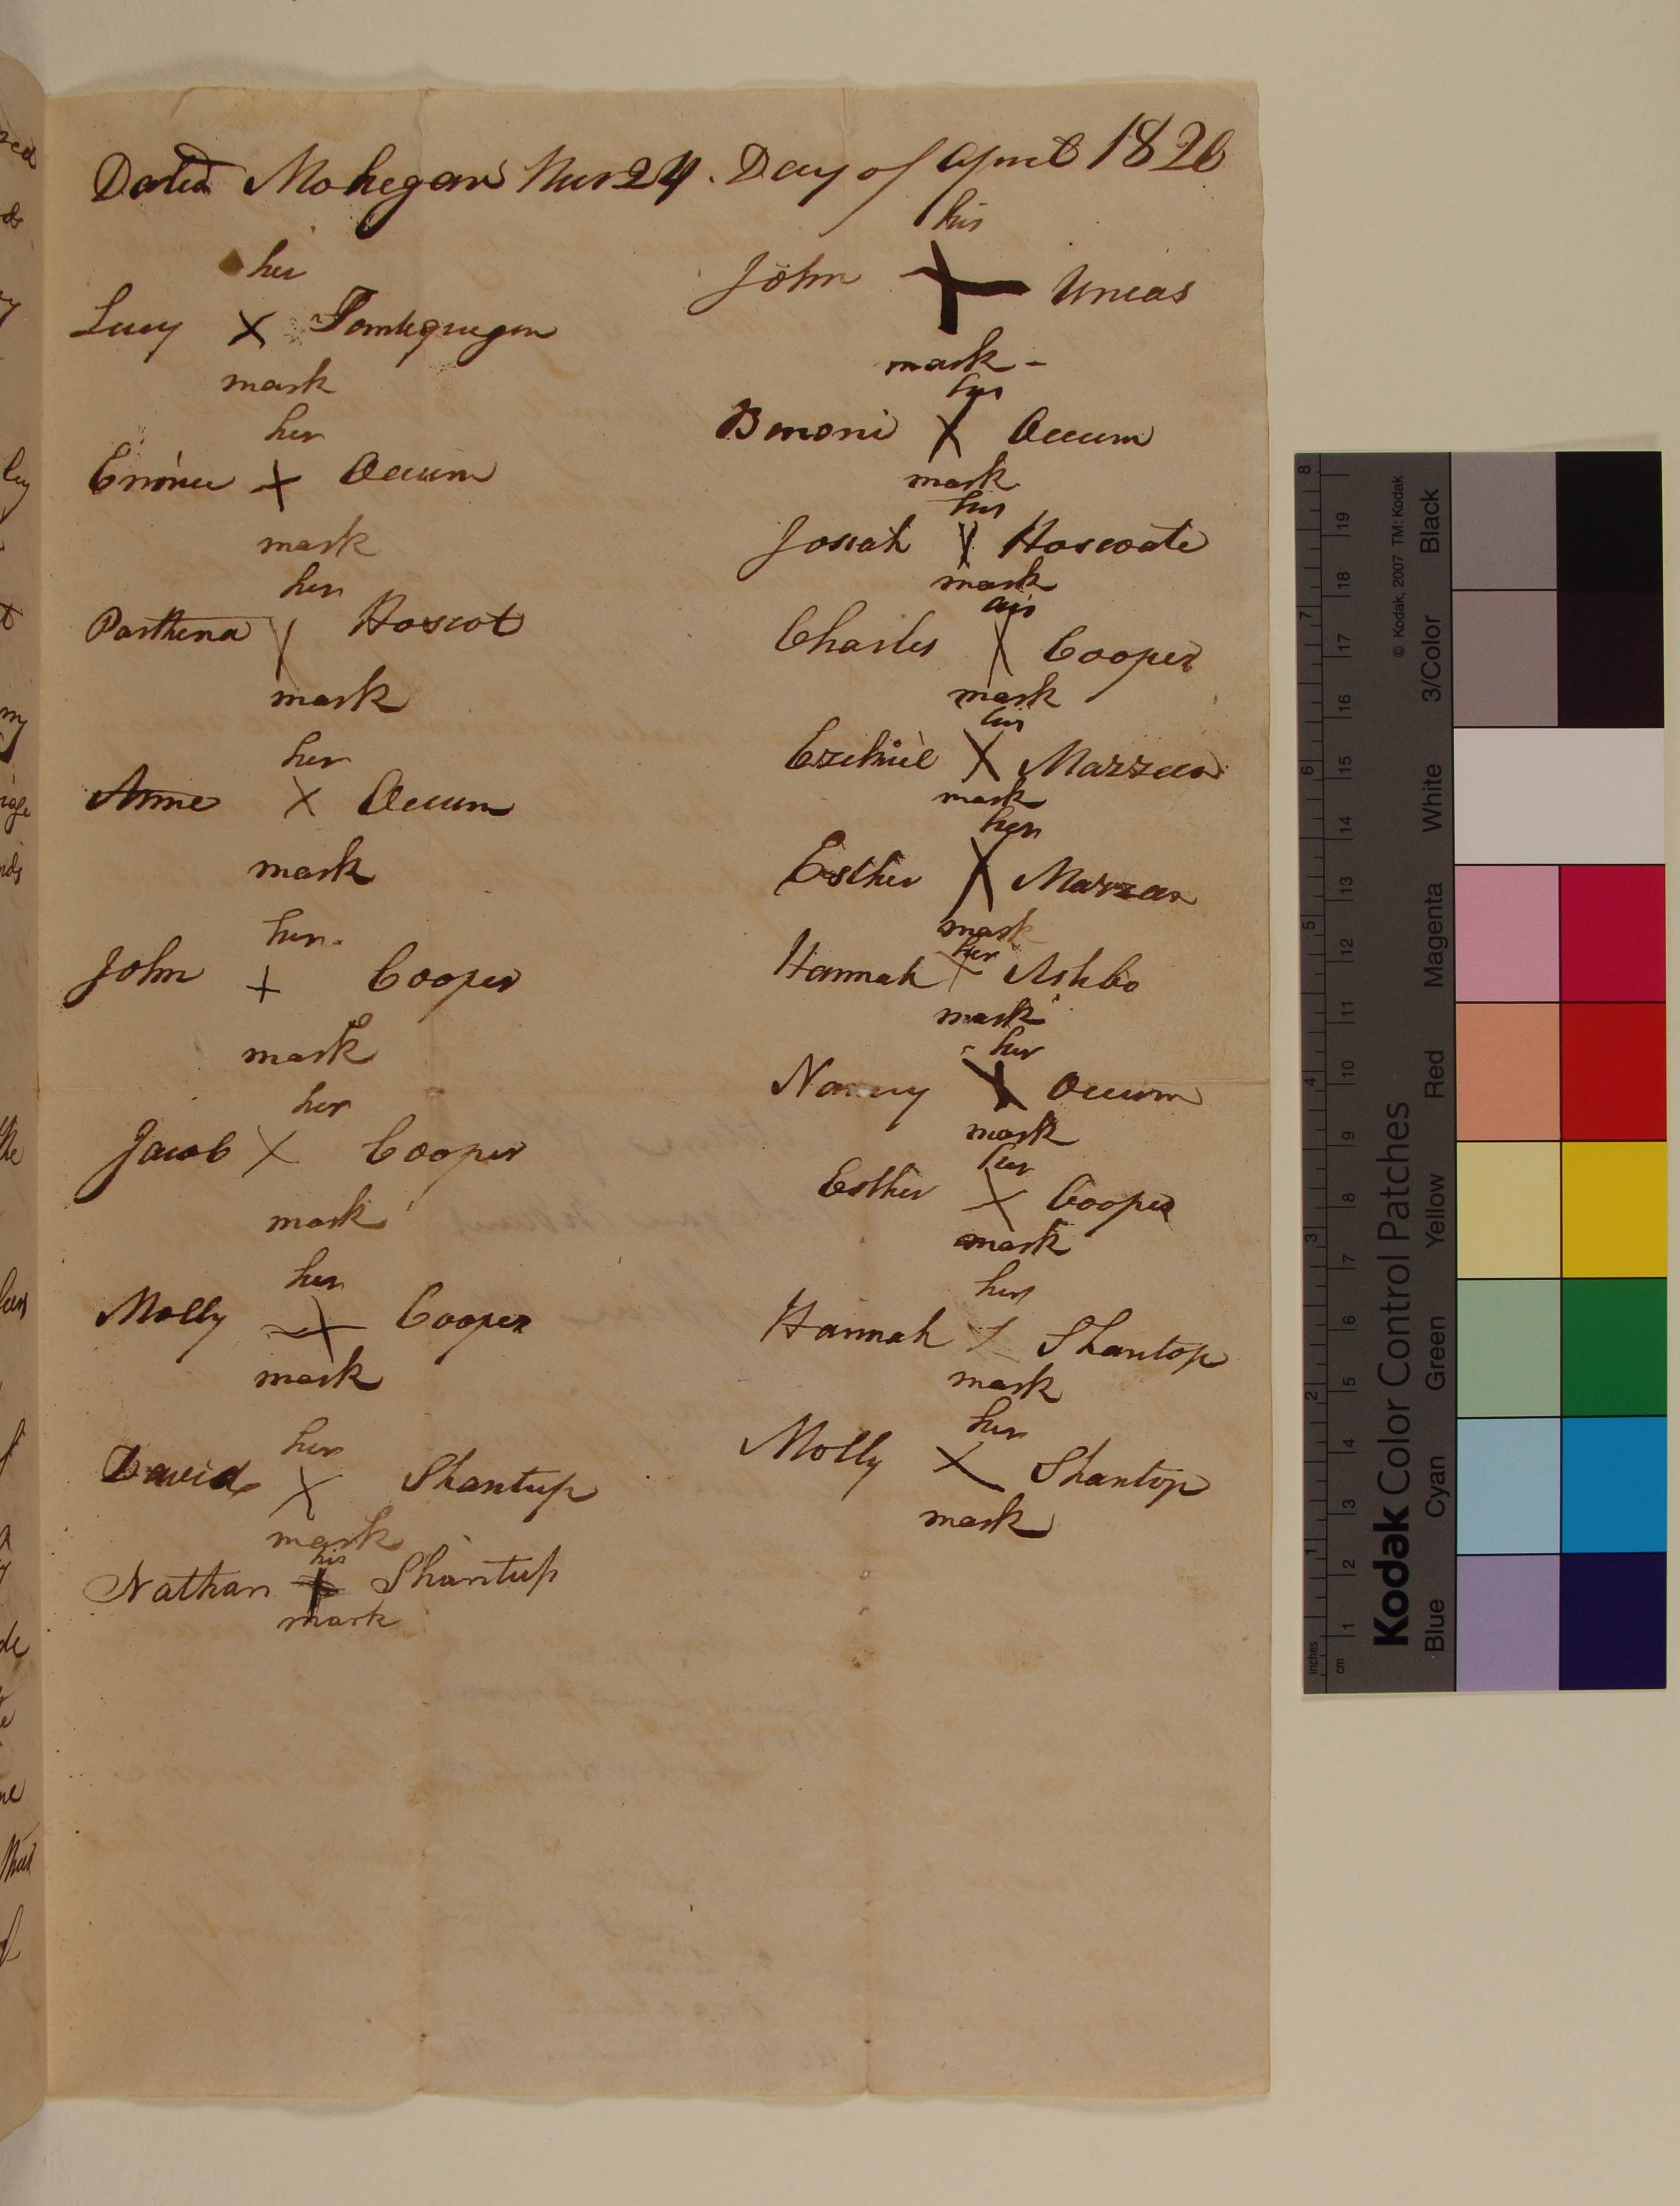 Dated Mohegan this 24. Day of April 1820
her
Lucy X Tomtequegon
mark
her
Eunice X Occum
mark
her
Parthena X Hoscot
mark
her
Anne X Occum
mark
her
John + Cooper
mark
her
Jacob X Cooper
mark
her
Molly X Cooper
mark
her
David X Shantup
mark
his
Nathan + Shantup
mark
his
John + Uncas
mark -
his
Benoni X Occum
mark
his
Josiah X Hoscoate
mark
his
Charles X Cooper
mark
his
Ezekiel X Mazzeen
mark
her
Esther X Mazzeen
mark
her
Hannah X Ashbo
mark
her
Nancy X Occum
mark
her
Esther X Cooper
mark
her
Hannah X Shantop
mark
her
Molly X Shantop
mark
Kodak Color Control Patches
© Kodak, 2007 TM: Kodak
Blue Cyan Green Yellow Red Magenta White 3/Color Black
inches 1 2 3 4 5 6 7 8
cm 1 2 3 4 5 6 7 8 9 10 11 12 13 14 15 16 17 18 19